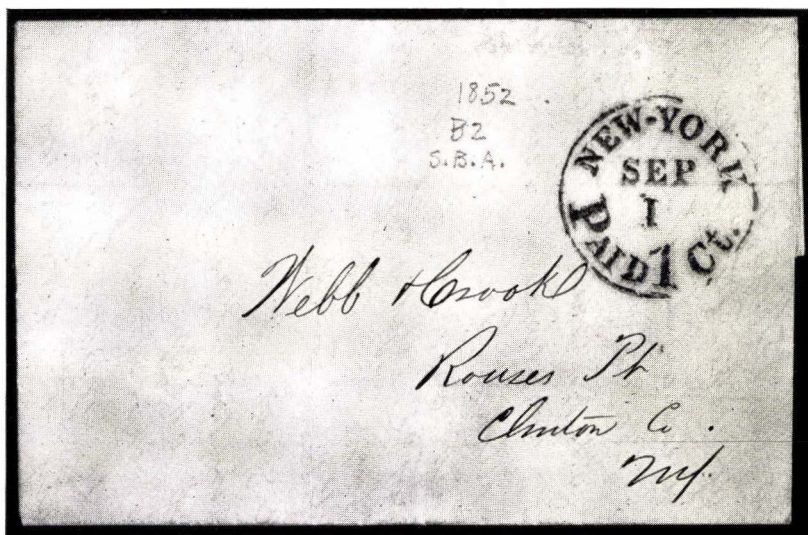 1852
B2
S.B.A.
NEW-YORK
SEP
1
PAID 1 Ct.
Webb & Crook
Rouses Pt
Clinton Co.
NY.